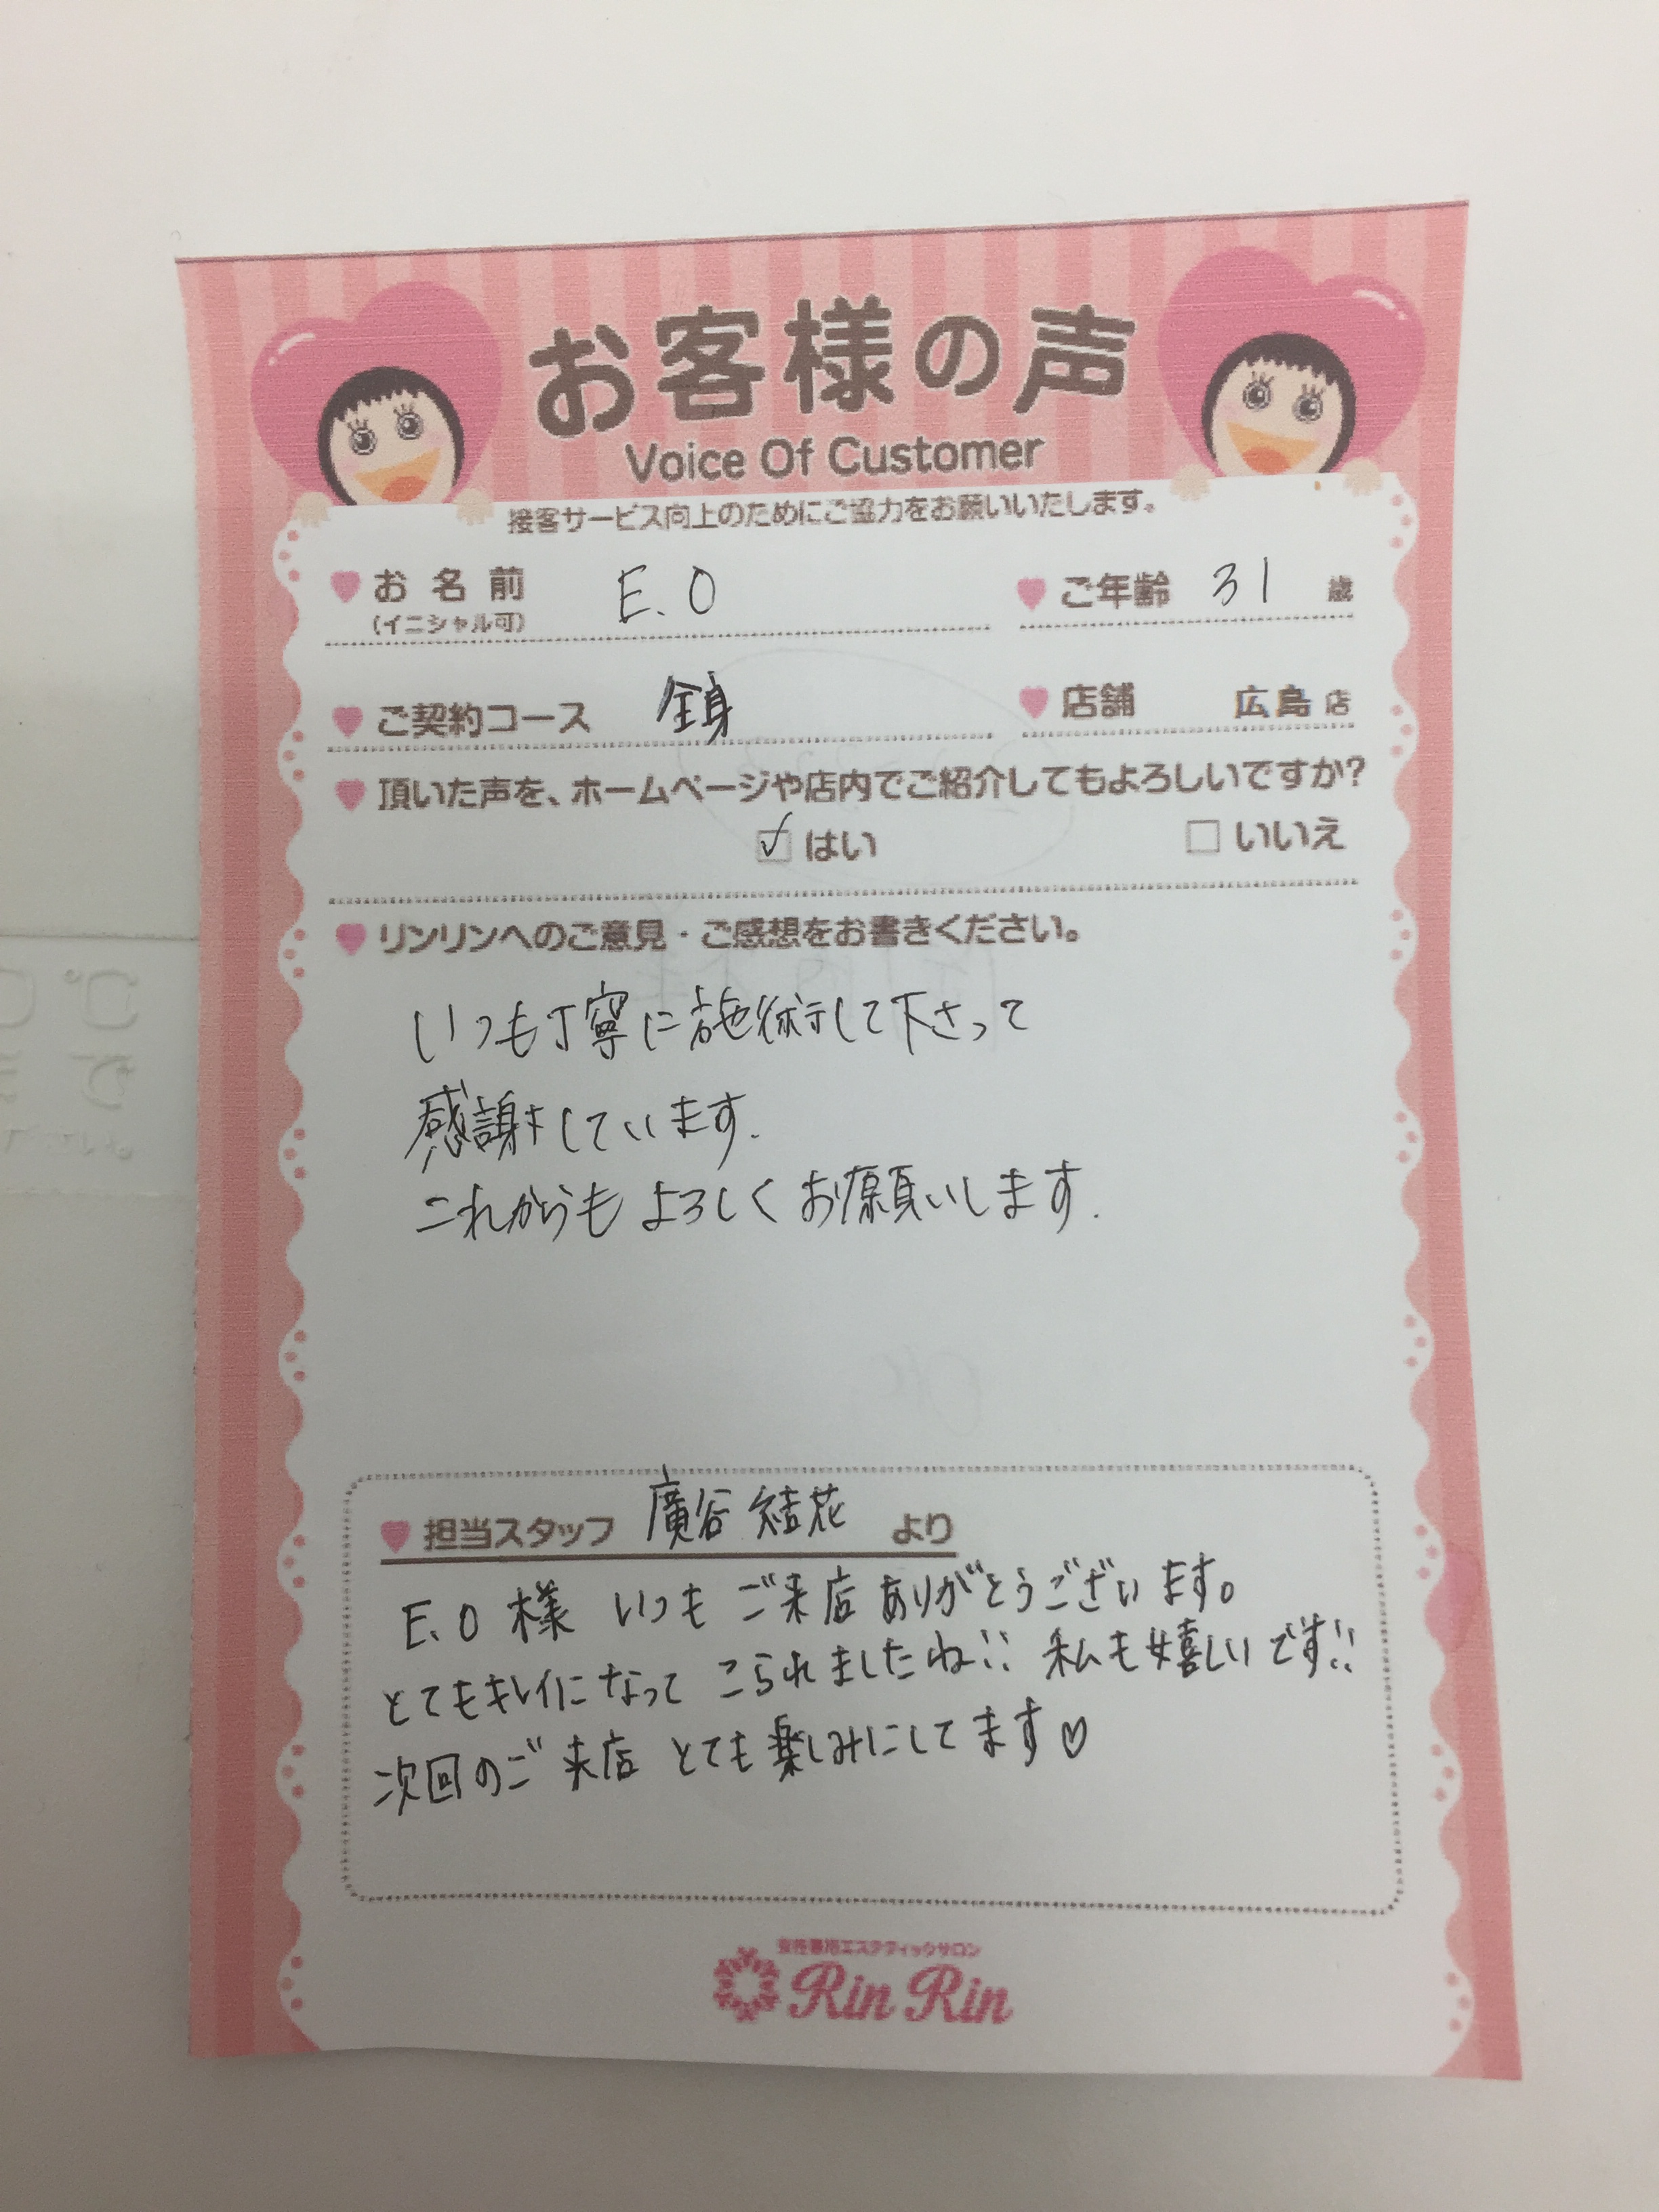 お客様の声
Voice Of Customer
接客サービス向上のためにご協力をお願いいたします。
お名前 E.O ご年齢 31 歳
(イニシャル可)
ご契約コース 全身 店舗 広島店
頂いた声を、ホームページや店内でご紹介してもよろしいですか?
はい いいえ
リンリンへのご意見・ご感想をお書きください。
いつも丁寧に施術して下さって
感謝しています.
これからもよろしくお願いします.
担当スタッフ 廣谷 結花 より
E.O様 いつもご来店ありがとうございます。
とてもキレイになってこられましたね!! 私も嬉しいです!!
次回のご来店とても楽しみにしてます♡
女性専用エステティックサロン
Rin Rin